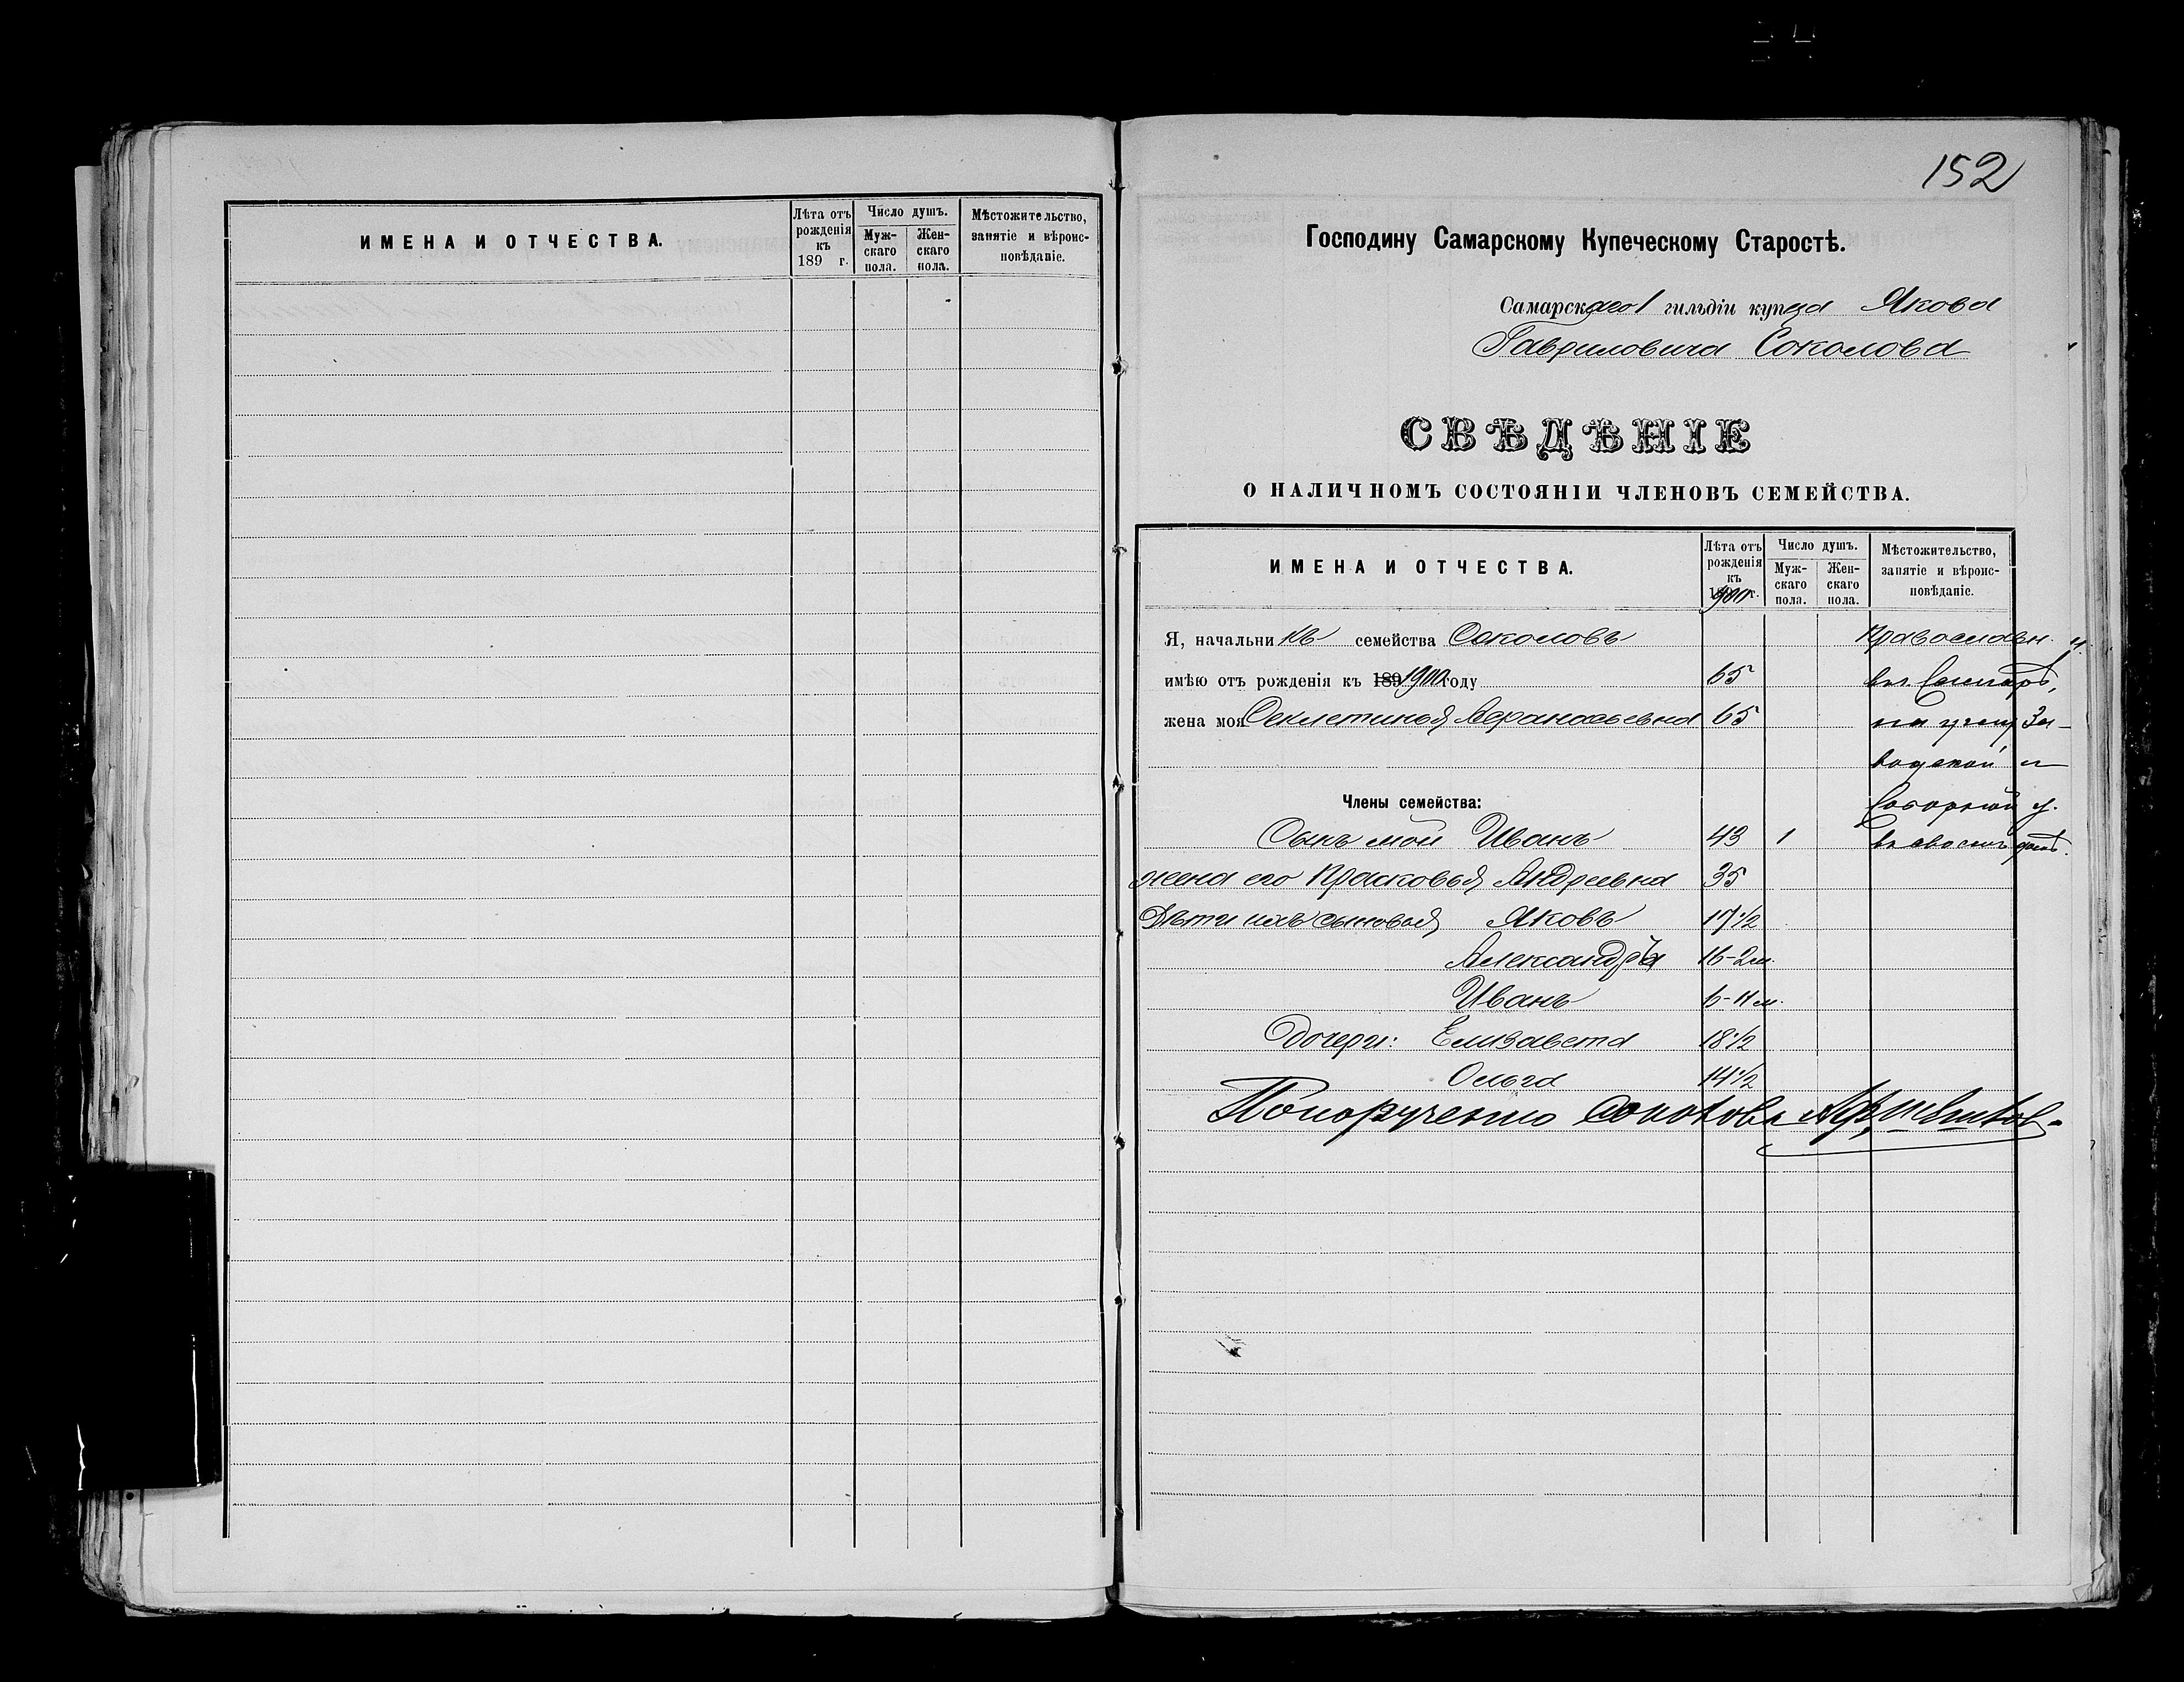 ИМЕНА И ОТЧЕСТВА.
Лѣта отъ рожденія къ 189 г.
Число душъ.
Мужскаго пола.
Женскаго пола.
Мѣстожительство, занятіе и вѣроисповѣданіе.
152
Господину Самарскому Купеческому Старостѣ.
Самарскаго 1 гильдіи купца Якова
Гавриловича Соколова
СВѢДѢНІЕ
О НАЛИЧНОМЪ СОСТОЯНІИ ЧЛЕНОВЪ СЕМЕЙСТВА.
ИМЕНА И ОТЧЕСТВА.
Лѣта отъ рожденія къ 1900 г.
Число душъ.
Мужскаго пола.
Женскаго пола.
Мѣстожительство, занятіе и вѣроисповѣданіе.
Я, начальникъ семейства Соколовъ Православн.
имѣю отъ рожденія къ 189 1900 году 65 въ Самарѣ,
жена моя Секлетинья Афанасьевна 65 на углу За-
водской и
Члены семейства: Соборной у.
Сынъ мой Иванъ 43 1 въ своемъ домѣ.
жена его Прасковья Андреевна 35
Дѣти ихъ сыновья Яковъ 17 1/2
Александръ 16-2 м.
Иванъ 6-11 м.
Дочери: Елизавета 18 1/2
Ольга 14 1/2
По порученію Соколова